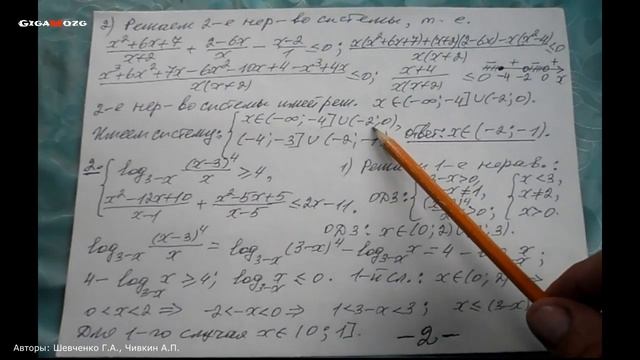 GIGAMOZG
2) Решаем 2-е нер-во системы, т. е.
(x²+6x+7)/(x+2) + (2-6x)/x - (x-2)/1 ≤ 0; (x(x²+6x+7)+(x+2)(2-6x)-x(x²-4))/(x(x+2)) ≤ 0
(x³+6x²+7x-6x²-10x+4-x³+4x)/(x(x+2)) ≤ 0; (x+4)/(x(x+2)) ≤ 0 - + - + -4 -2 0 x
2-е нер-во системы имеет реш. x∈(-∞;-4]∪(-2;0).
Имеем систему: { x∈(-∞;-4]∪(-2;0),
(-4;-3]∪(-2;-1 Ответ: x∈(-2;-1).
2. { log₃₋ₓ (x-3)⁴/x ≥ 4, 1) Решаем 1-е нерав.:
(x²-12x+10)/(x-1) + (x²-5x+5)/(x-5) ≤ 2x-11. ОДЗ: { 3-x>0, -x≠1, >0; { x<3, x≠2, x>0.
ОДЗ: x∈(0;2) ;3)
log₃₋ₓ (x-3)⁴/x = log₃₋ₓ (3-x)⁴ - log₃₋ₓ x = 4 - x;
4 - log₃₋ₓ x ≥ 4; log₃₋ₓ x ≤ 0. 1-й сл.: x∈(0;2)
0<x<2 ⇒ -2<-x<0 ⇒ 1<3-x<3; x≤(3-x)
Для 1-го случая x∈(0;1].
-2-
Авторы: Шевченко Г.А., Чивкин А.П.